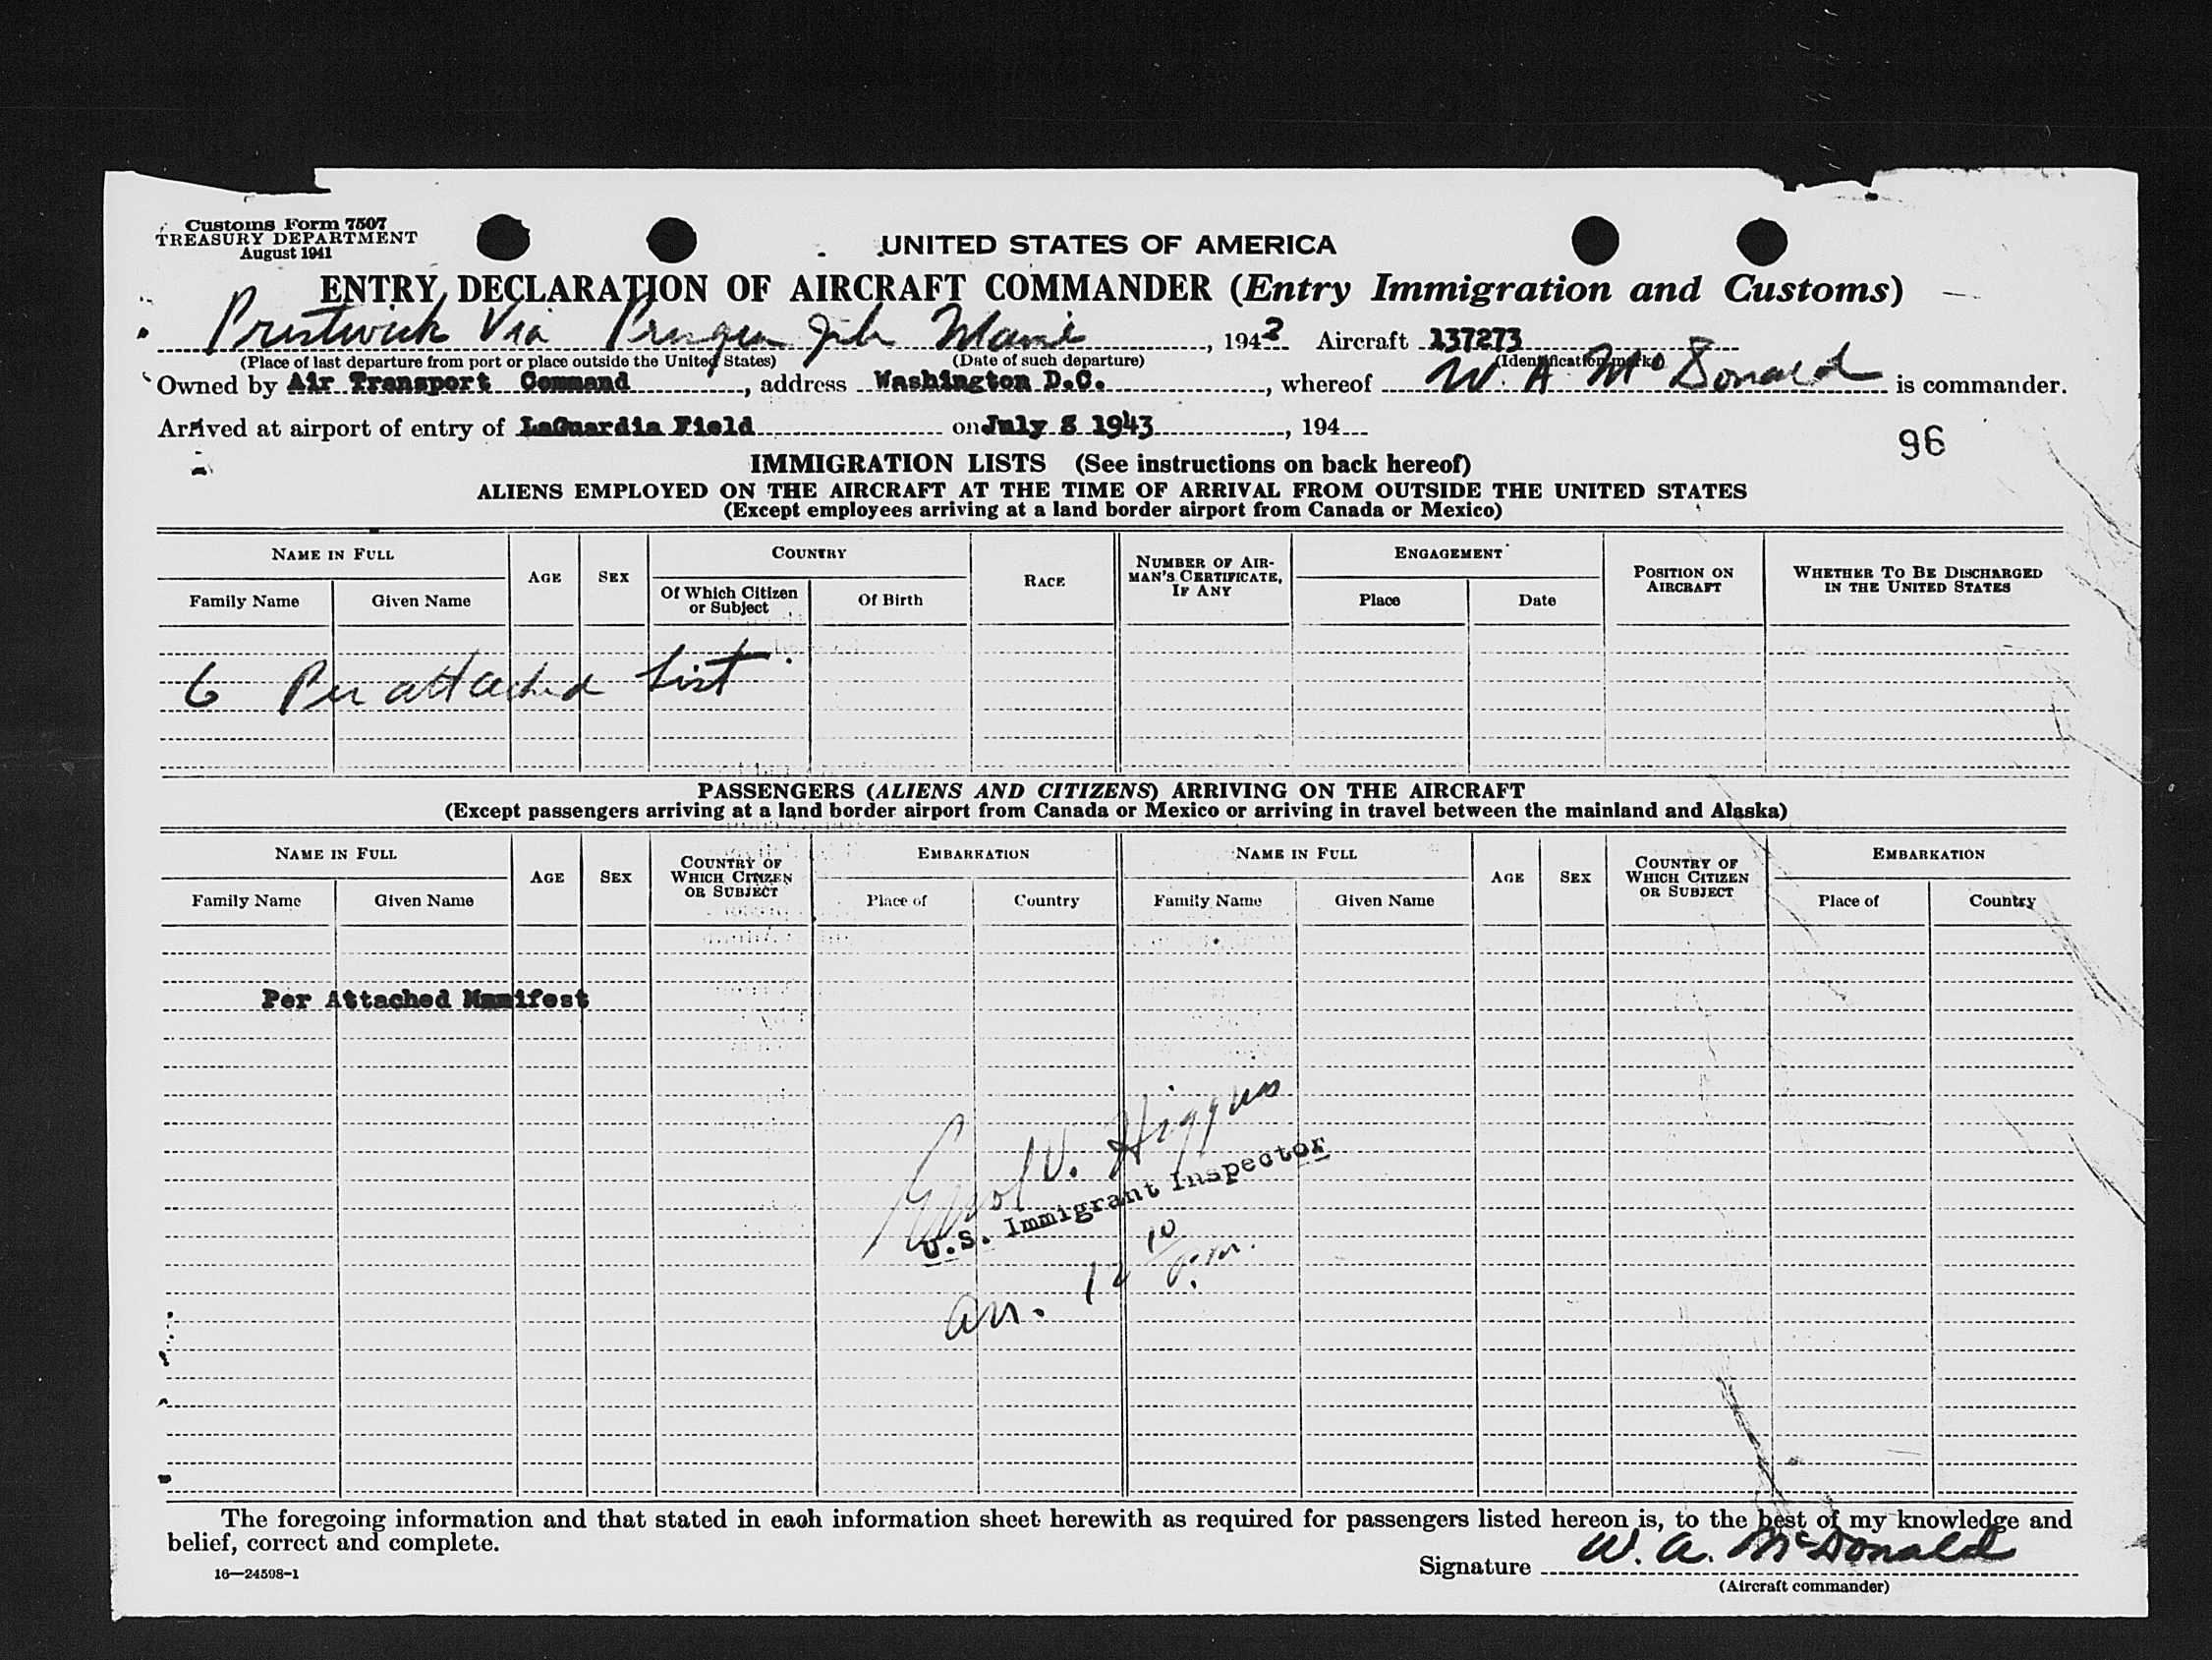 Customs Form 7507
TREASURY DEPARTMENT
August 1941
UNITED STATES OF AMERICA
ENTRY DECLARATION OF AIRCRAFT COMMANDER (Entry Immigration and Customs)
Prestwick Via Maine, 1943 Aircraft 137273
(Place of last departure from port or place outside the United States) (Date of such departure) (Identification marks)
Owned by Air Transport Command, address Washington D.C., whereof W. A McDonald is commander.
Arrived at airport of entry of LaGuardia Field on July 8 1943, 194
96
IMMIGRATION LISTS (See instructions on back hereof)
ALIENS EMPLOYED ON THE AIRCRAFT AT THE TIME OF ARRIVAL FROM OUTSIDE THE UNITED STATES
(Except employees arriving at a land border airport from Canada or Mexico)
NAME IN FULL AGE SEX COUNTRY RACE NUMBER OF AIRMAN'S CERTIFICATE, IF ANY ENGAGEMENT POSITION ON AIRCRAFT WHETHER TO BE DISCHARGED IN THE UNITED STATES
Family Name Given Name Of Which Citizen or Subject Of Birth Place Date
6 Per attached List
PASSENGERS (ALIENS AND CITIZENS) ARRIVING ON THE AIRCRAFT
(Except passengers arriving at a land border airport from Canada or Mexico or arriving in travel between the mainland and Alaska)
NAME IN FULL AGE SEX COUNTRY OF WHICH CITIZEN OR SUBJECT EMBARKATION NAME IN FULL AGE SEX COUNTRY OF WHICH CITIZEN OR SUBJECT EMBARKATION
Family Name Given Name Place of Country Family Name Given Name Place of Country
Per Attached Manifest
Errol V. Higgins
U.S. Immigrant Inspector
arr. 12 10 p.m.
The foregoing information and that stated in each information sheet herewith as required for passengers listed hereon is, to the best of my knowledge and
belief, correct and complete.
Signature W. A. McDonald
16—24598-1
(Aircraft commander)